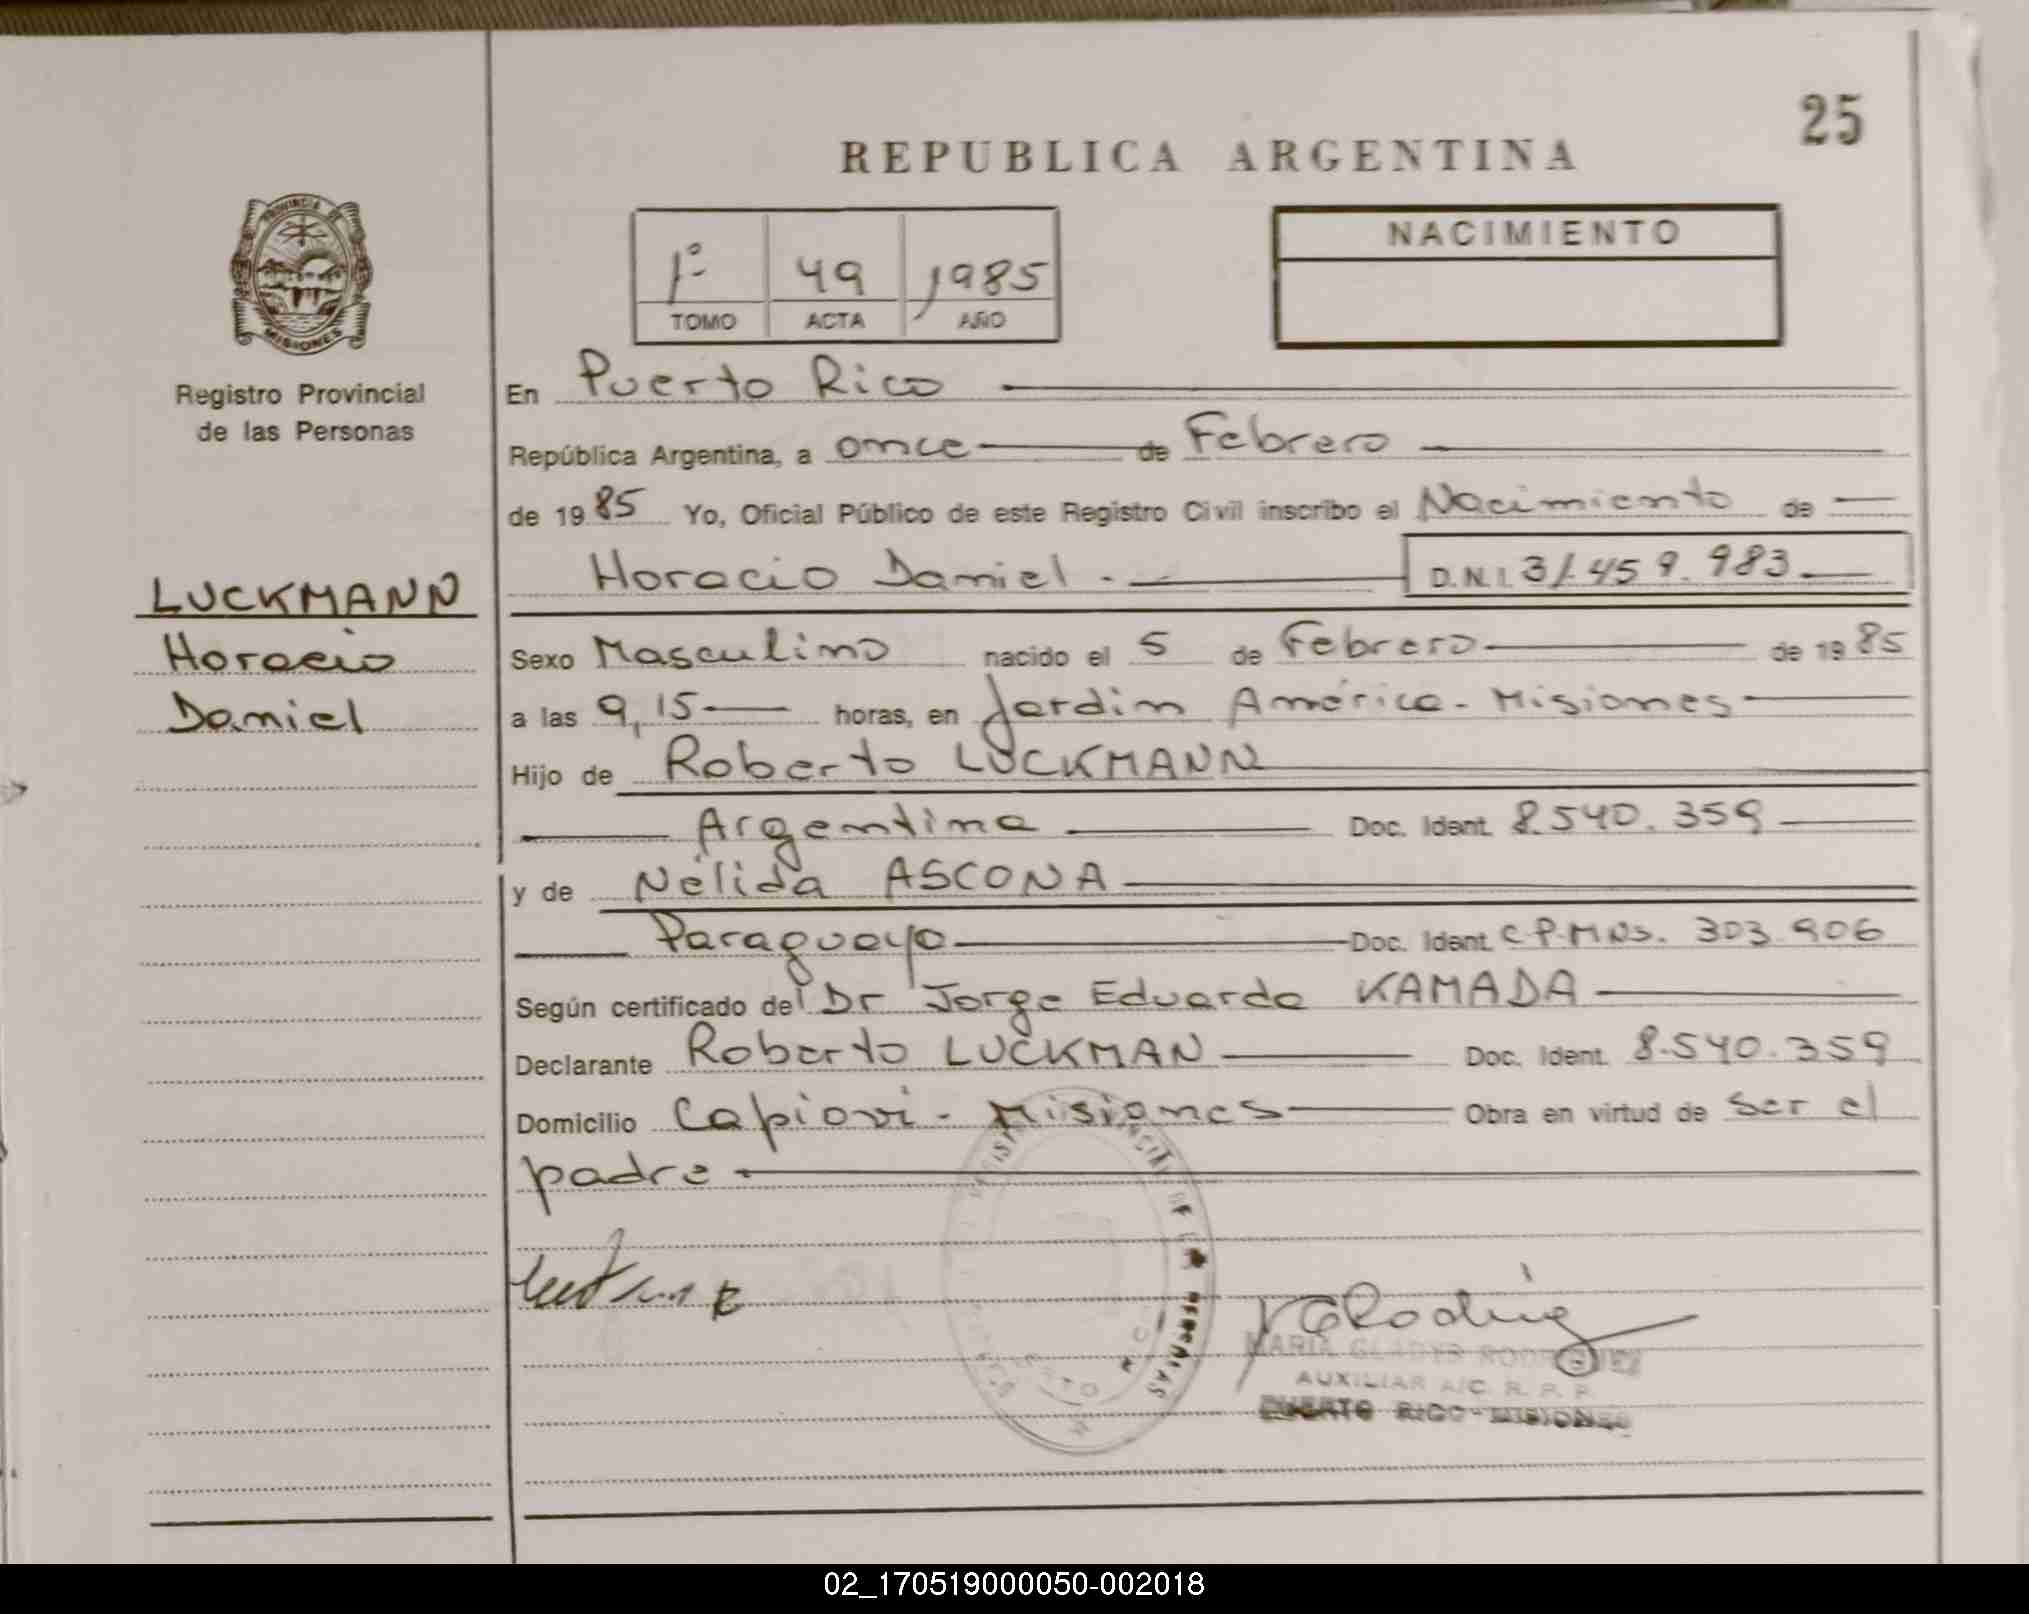 25
REPUBLICA ARGENTINA
PROVINCIA DE
MISIONES
Registro Provincial
de las Personas
LUCKMANN
Horacio
Daniel
1º 49 1985
TOMO ACTA AÑO
NACIMIENTO
En Puerto Rico
República Argentina, a once de Febrero
de 1985 Yo, Oficial Público de este Registro Civil inscribo el Nacimiento de
Horacio Daniel. D.N.I. 31.459.983
Sexo Masculino nacido el 5 de Febrero de 1985
a las 9,15 horas, en Jardin América - Misiones
Hijo de Roberto LUCKMANN
Argentina Doc. Ident. 8.540.359
y de Nélida ASCONA
Paraguaya Doc. Ident C.P.MNS. 303.906
Según certificado del Dr Jorge Eduardo KAMADA
Declarante Roberto LUCKMAN Doc. Ident. 8.540.359
Domicilio Capiovi - Misiones Obra en virtud de ser el
padre
MARIA GLADYS RODRIGUEZ
AUXILIAR A/C. R. P. P.
PUERTO RICO - MISIONES
02_170519000050-002018